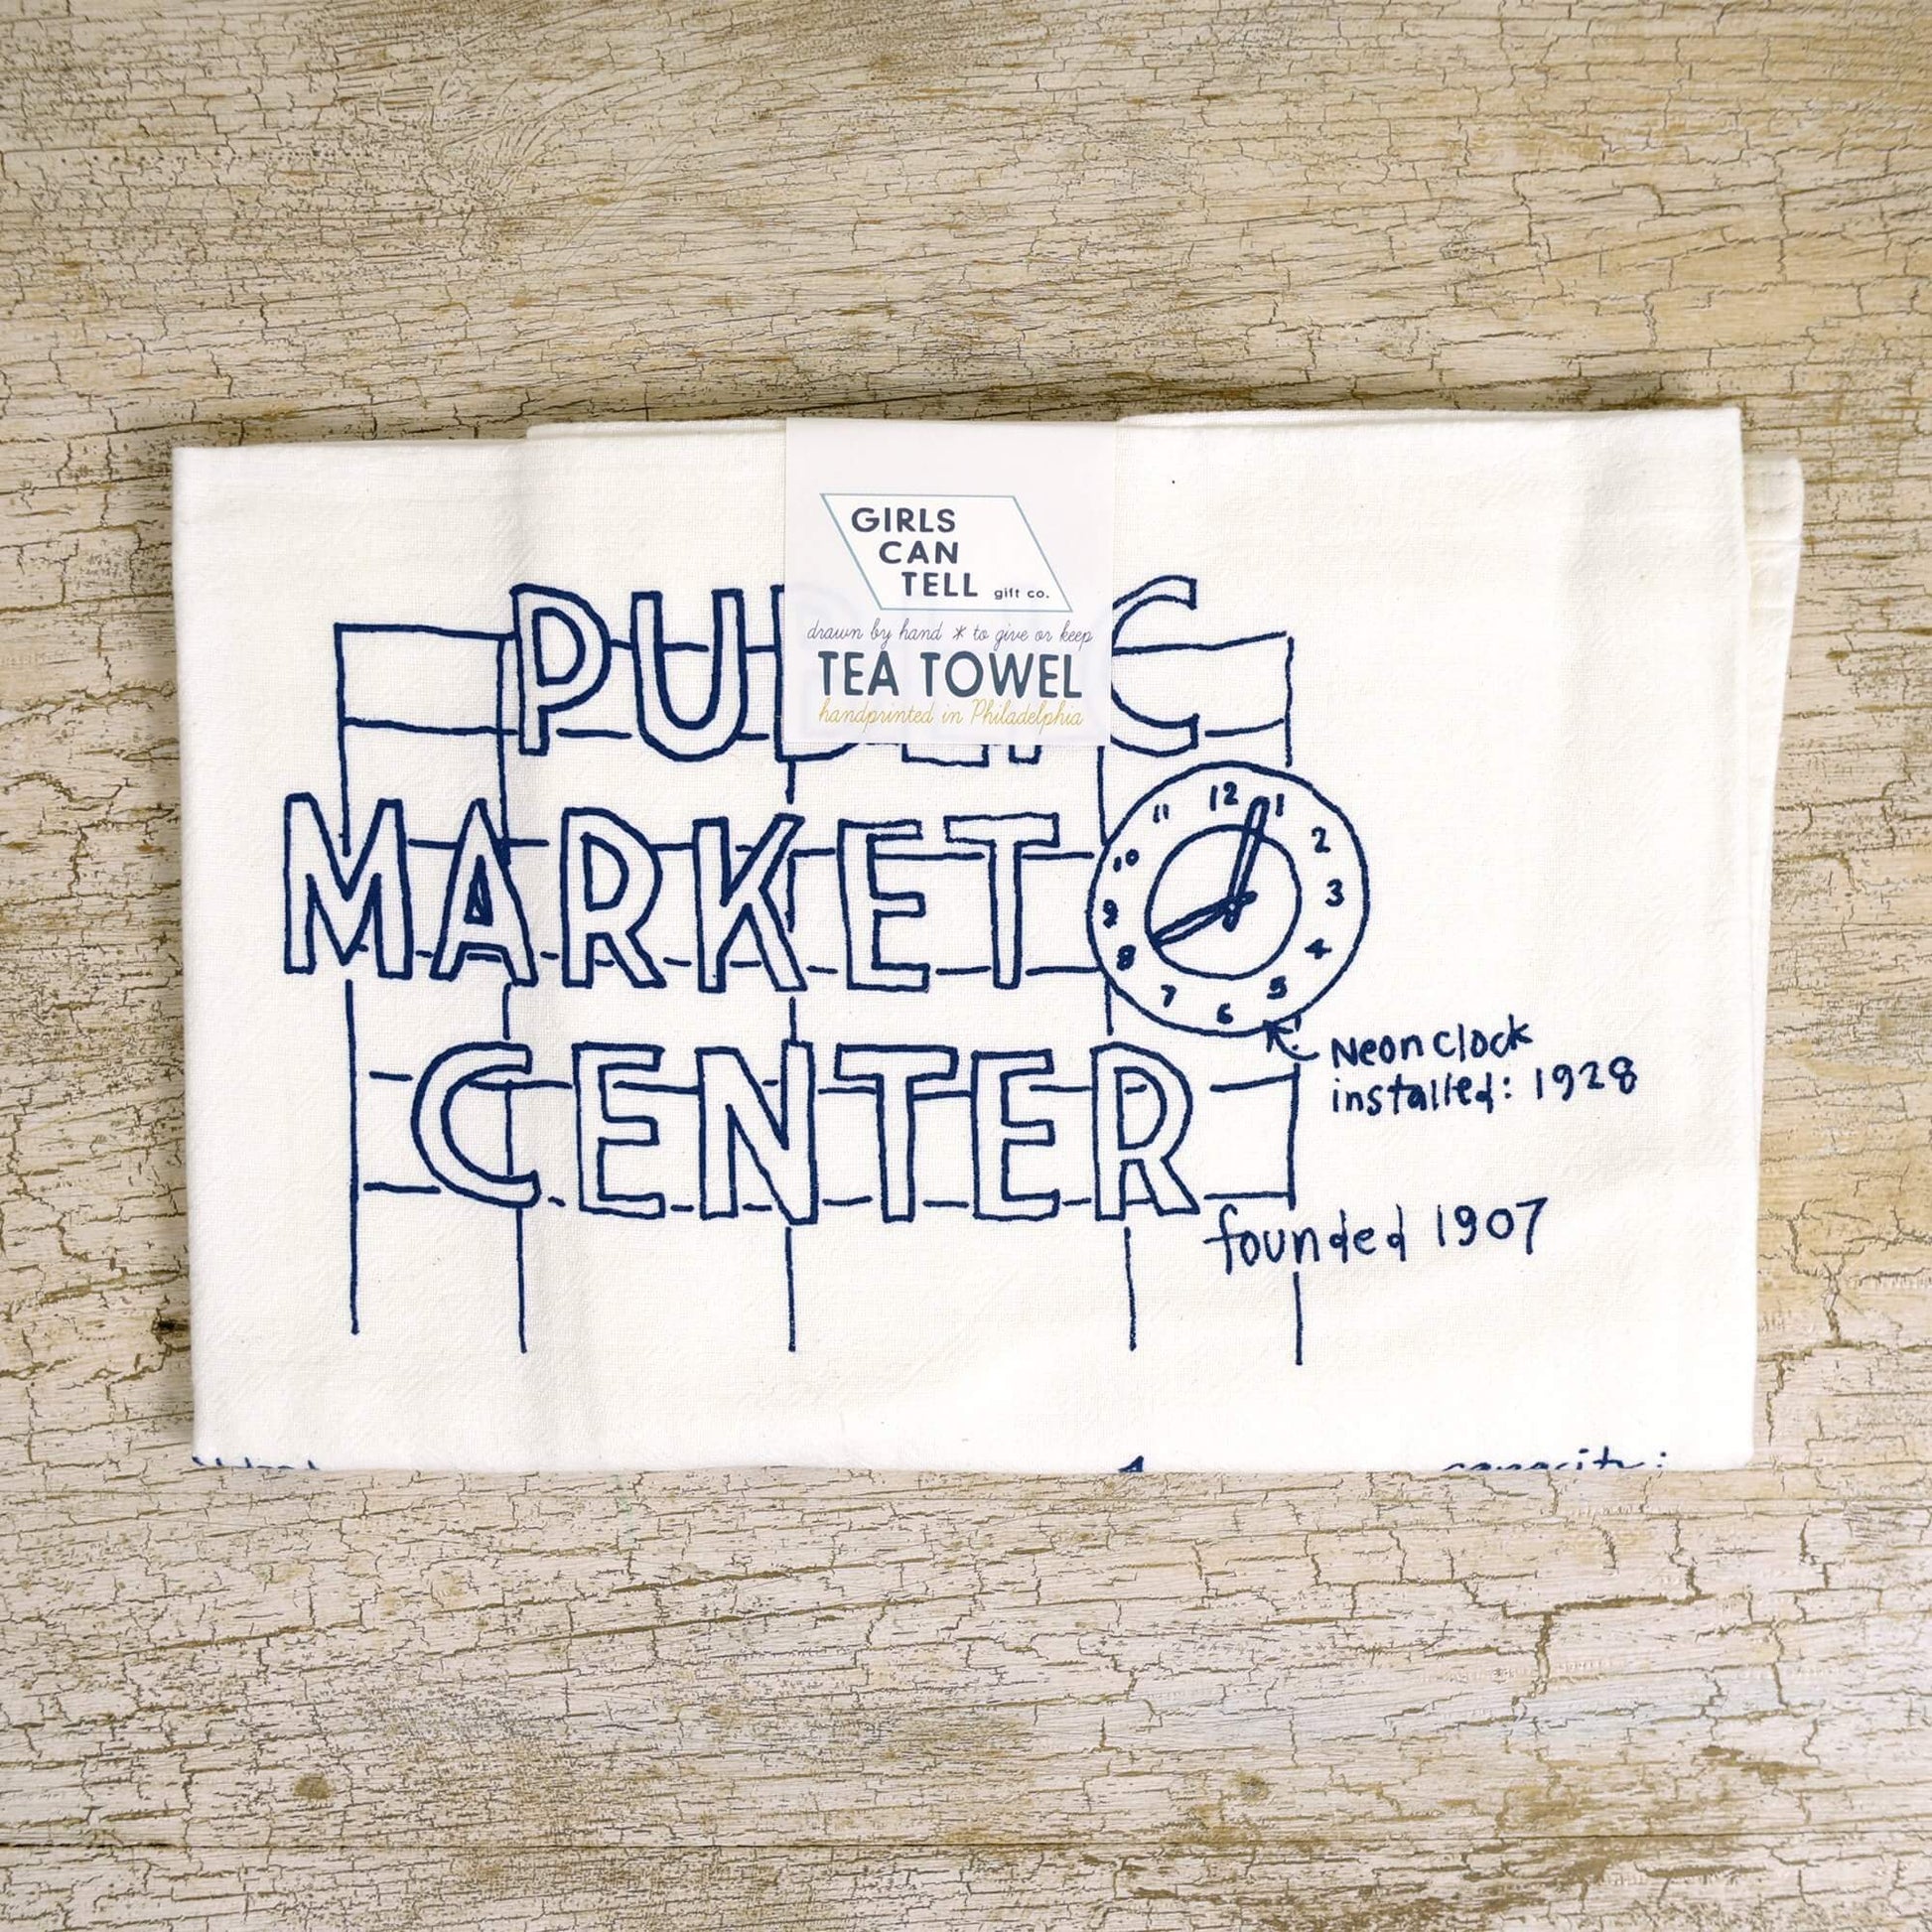 GIRLS
CAN
TELL gift co.
drawn by hand * to give or keep
TEA TOWEL
handprinted in Philadelphia
PUBLIC
MARKET
12
1
2
3
4
5
6
7
8
9
10
11
CENTER
Neon clock
installed: 1928
founded 1907
capacity: